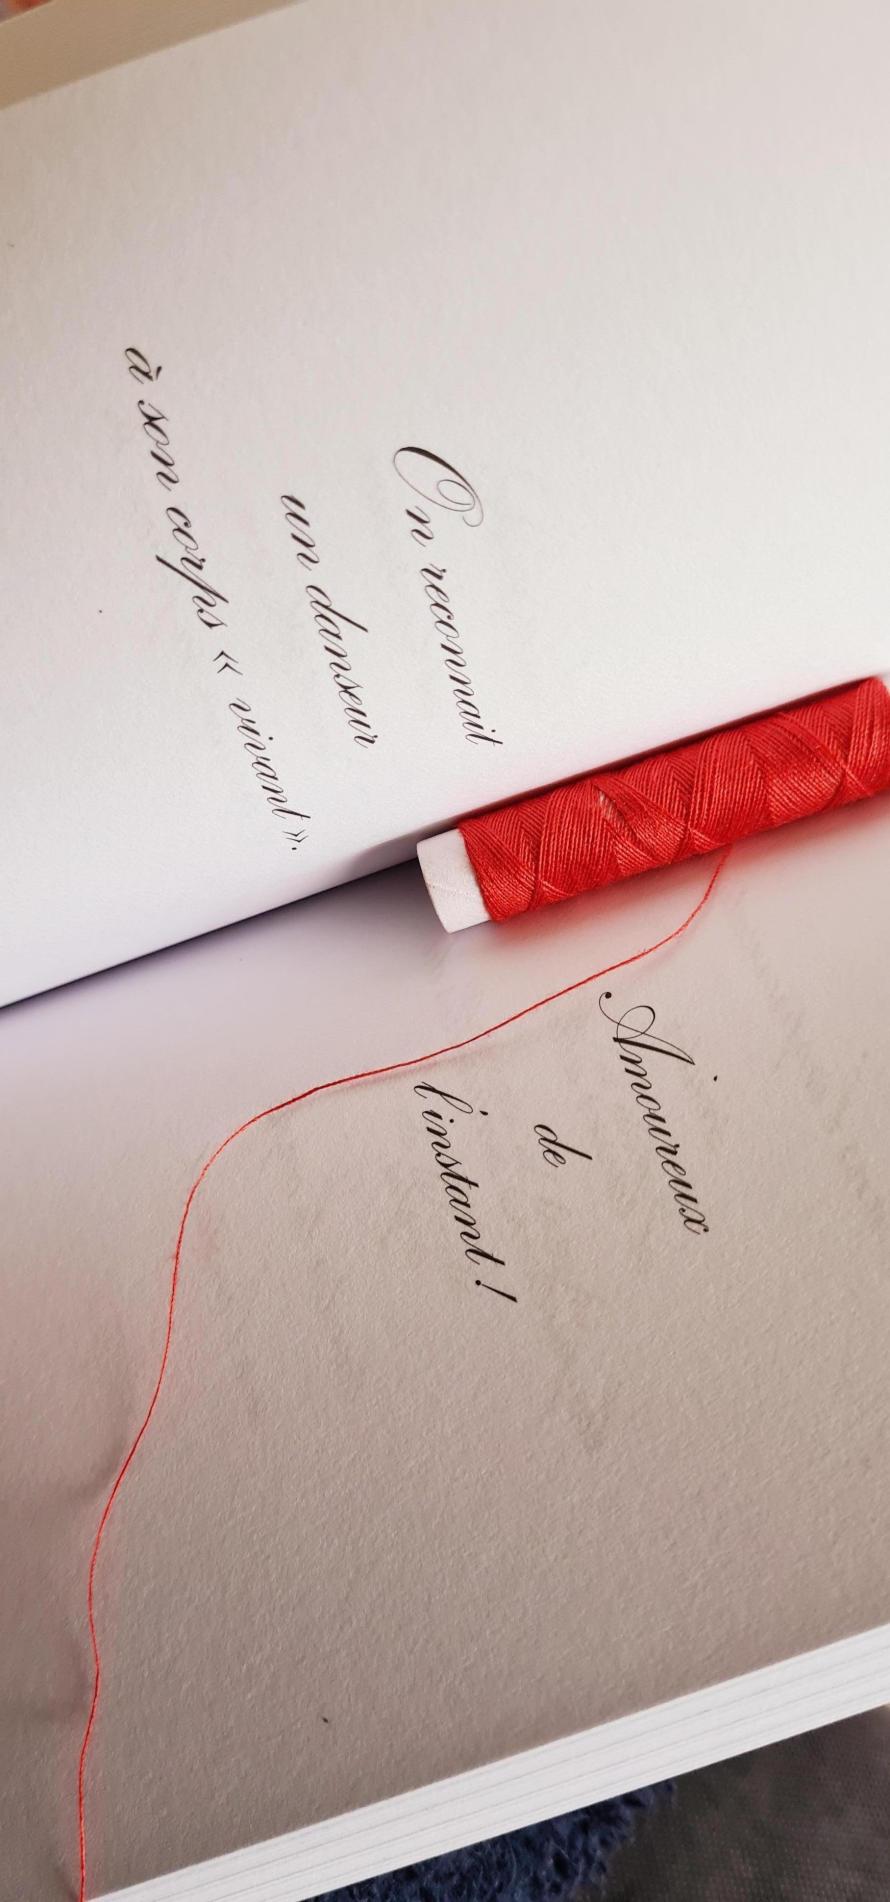 On reconnait
un danseur
à son corps « vivant ».
Amoureux
de
l'instant !